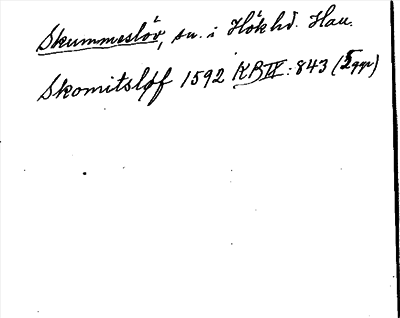 Skummeslöv, sn. i Hök hd. Hall.
Skomitsløf 1592 KB IV: 843 (2ggr)